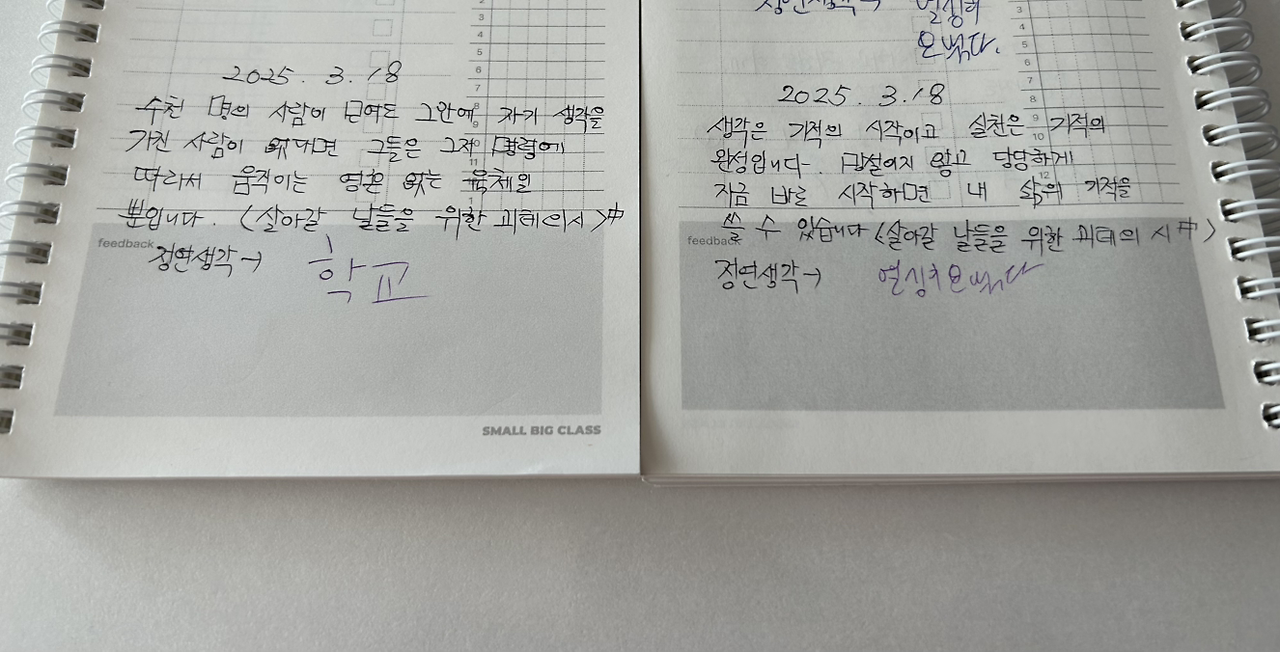 2025. 3. 18
수천 명의 사람이 모여도 그안에 자기 생각을
가진 사람이 없다면 그들은 그저 명령에
따라서 움직이는 영혼 없는 육체일
뿐입니다. <살아갈 날들을 위한 괴테의시>中
feedback
정연생각→ 학교
SMALL BIG CLASS
열심히
오벘다.
2025. 3. 18
생각은 기적의 시작이고 실천은 기적의
완성입니다. 망설이지 않고 당당하게
지금 바로 시작하면 내 삶의 기적을
쓸 수 있습니다 <살아갈 날들을 위한 괴테의 시中>
feedback
정연생각→